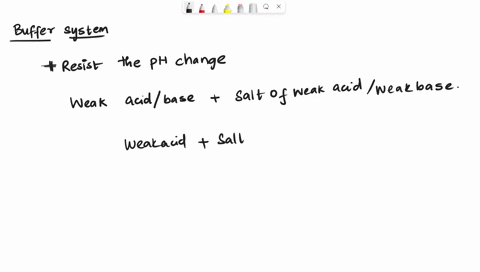 Buffer system
+ Resist the pH change
Weak acid/base + Salt of weak acid/weak base.
Weak acid + Sall